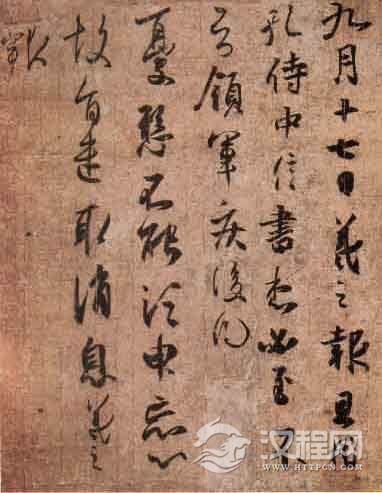 九月十七日羲之報且因
孔侍中信書想必至不
知領軍疾後問
憂懸不能須臾忘心
故旨遣取消息羲之
報
汉程网
HTTPCN.COM